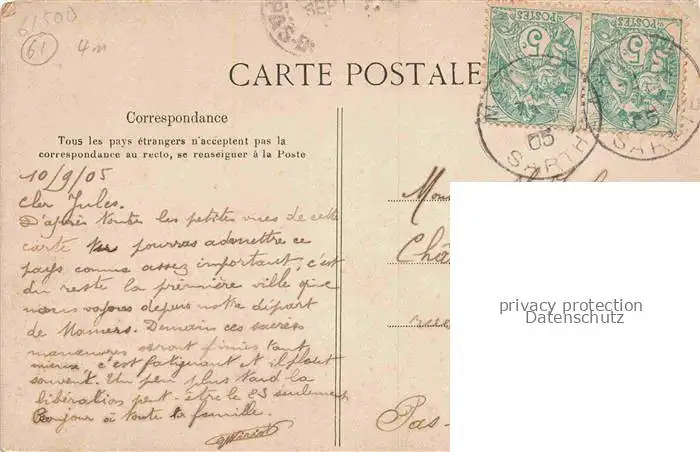 61500
61
4 m
CARTE POSTALE
POSTES
5
POSTES
5
05
SARTHE
05
SARTHE
Correspondance
Tous les pays étrangers n'acceptent pas la
correspondance au recto, se renseigner à la Poste
10/9/05
Cher Jules.
D'après toutes les petites vues de cette
carte tu pourras admettre ce
pays comme assez important, c'est
du reste la première ville que
nous voyons depuis notre départ
de Mamers. Demain ces sacrées
manœuvres seront finies tant
mieux c'est fatiguant et il pleut
souvent. Un peu plus tard la
libération peut-être le 23 seulement
Bonjour à toute la famille.
Mon
Châ
rue
Pas-
privacy protection
Datenschutz